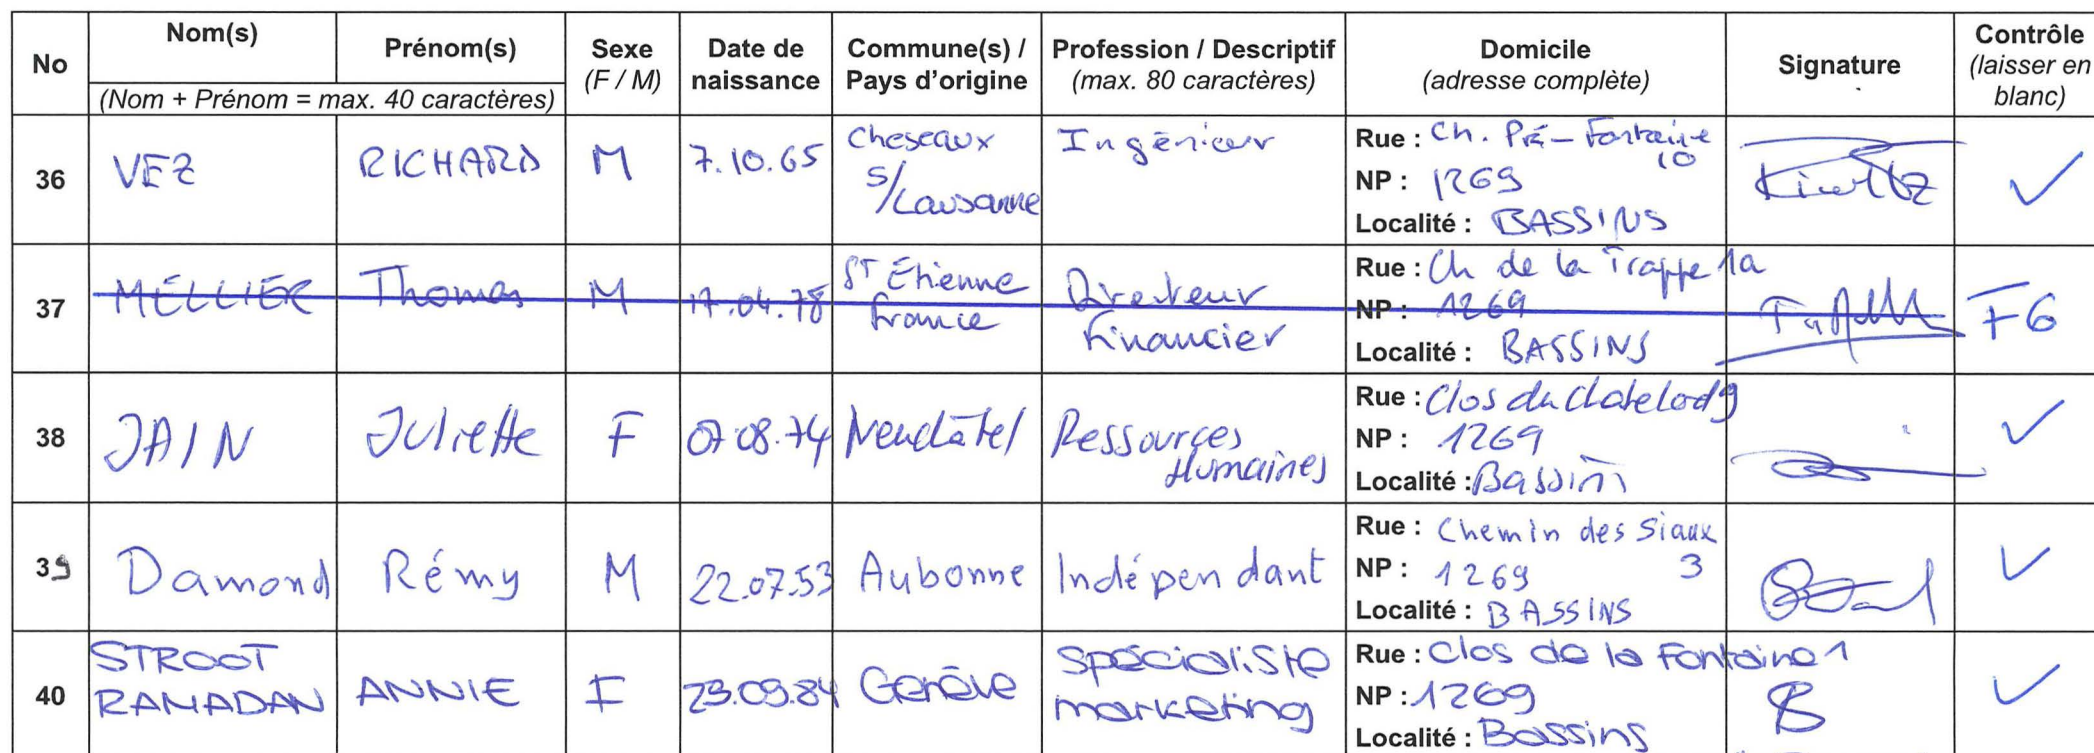 No Nom(s) Prénom(s) Sexe (F / M) Date de naissance Commune(s) / Pays d'origine Profession / Descriptif (max. 80 caractères) Domicile (adresse complète) Signature Contrôle (laisser en blanc)
(Nom + Prénom = max. 40 caractères)
36 VEZ RICHARD M 7.10.65 Cheseaux s/Lausanne Ingénieur
Rue : Ch. Pré-Fontaine 10
NP : 1269
Localité : BASSINS
37 MELLIER Thomas M 17.04.78 St Étienne France Directeur Financier
Rue : Ch de la Trappe 1a
NP : 1269
Localité : BASSINS
FG
38 JAIN Juliette F 07.08.74 Neuchâtel Ressources Humaines
Rue : Clos du 9
NP : 1269
Localité : Bassins
39 Damond Rémy M 22.07.53 Aubonne Indépendant
Rue : Chemin des Siaux 3
NP : 1269
Localité : BASSINS
40 STROOT RAMADAN ANNIE F 23.09.84 Genève Spécialiste marketing
Rue : Clos de la Fontaine 1
NP : 1269
Localité : Bassins